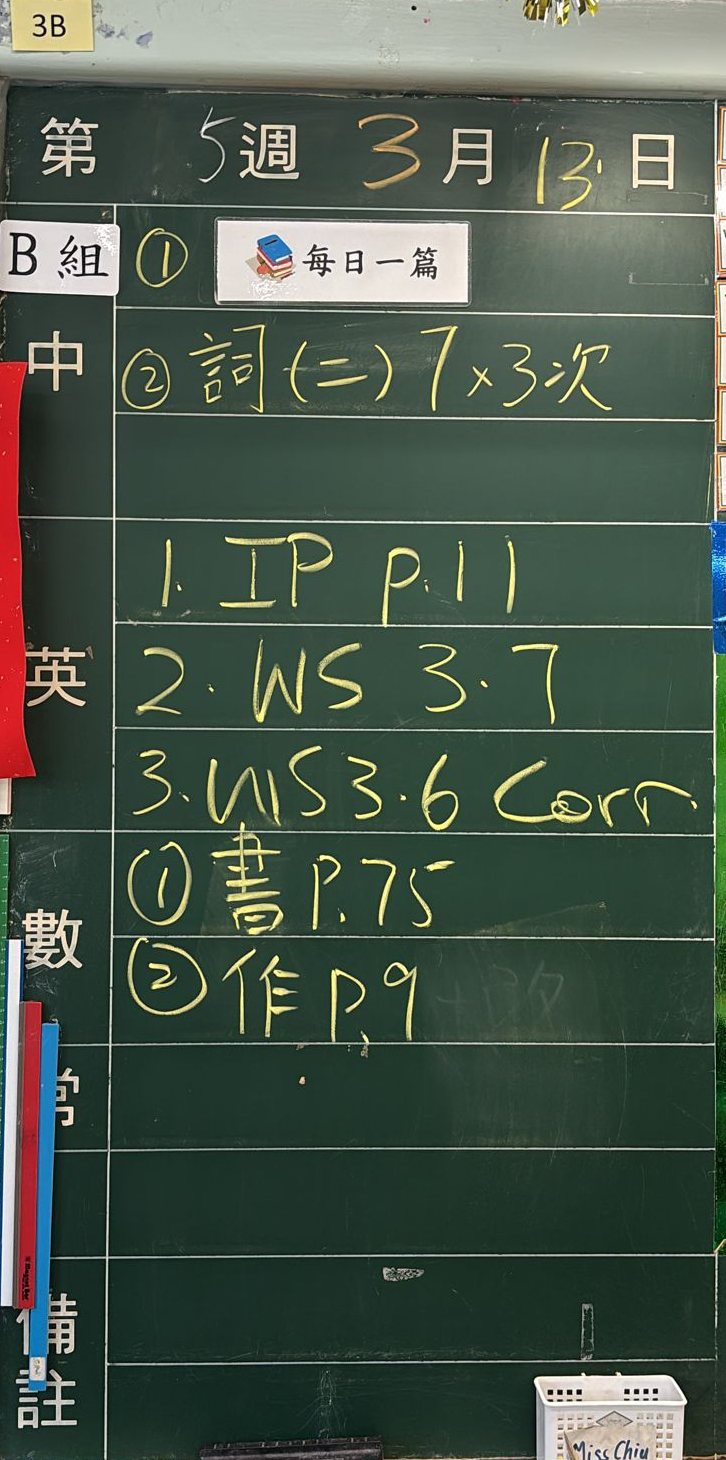 3B
第 5 週 3 月 13 日
B 組
① 每日一篇
中
② 詞(二) 7×3次
英
1. IP p.11
2. WS 3.7
3. WS 3.6 Corr.
數
① 書 P.75
② 作 P.9
常
備註
Miss Chiu